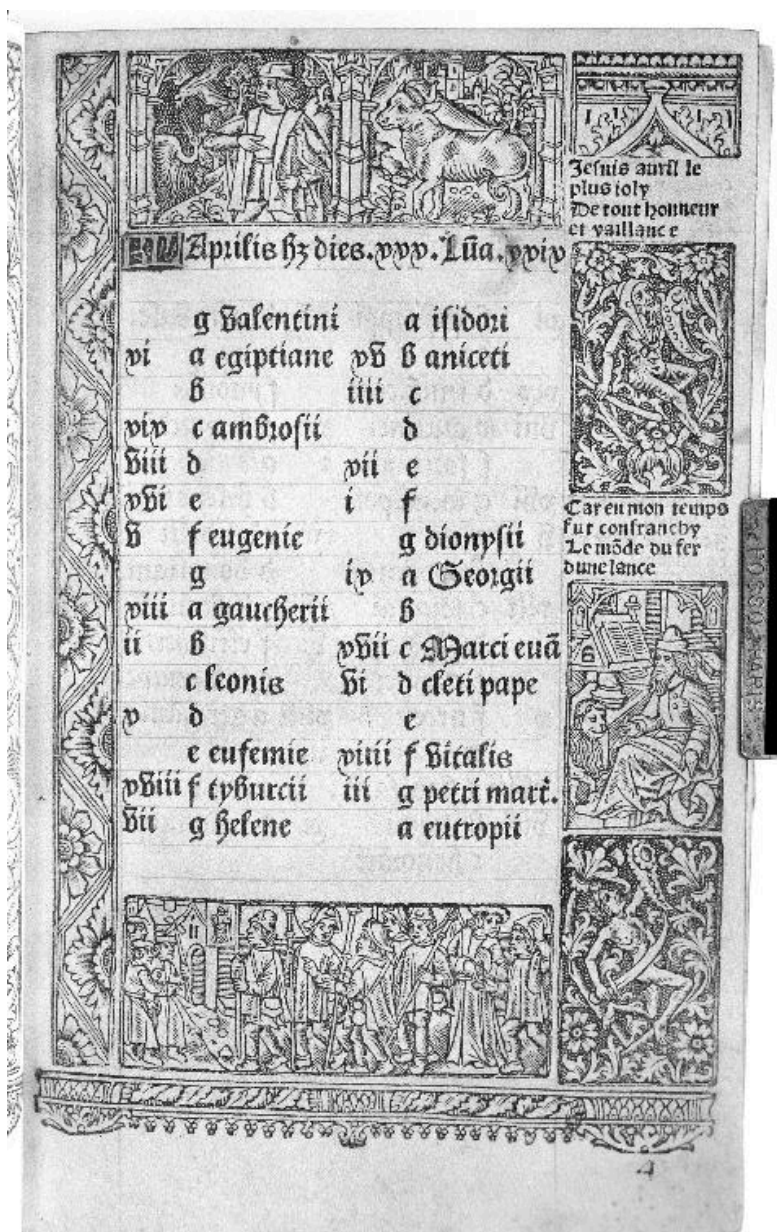 Jesuis auril le
plus ioly
De tout honneur
et vaillance
Aprilis hȝ dies.xxx. Lūa.xxix
g Valentini
vi a egiptiane
b
xix c ambrosii
viii d
xvi e
v f eugenie
g
xiii a gaucherii
ii b
c leonis
x d
e eufemie
xviii f tyburcii
vii g helene
a isidori
xv b aniceti
iiii c
d
xii e
i f
g dionysii
ix a Georgii
b
xvii c Marci euā
vi d cleti pape
e
xiiii f vitalis
iii g petri mart.
a eutropii
Car en mon temps
fut confranchy
Le mōde du fer
dune lance
4